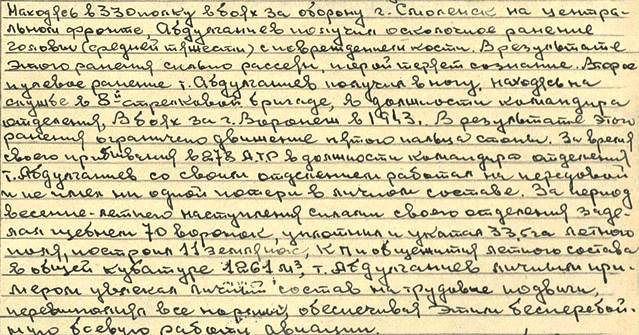 Находясь в 330 полку в боях за оборону г. Смоленск на центра-
льном фронте, Абдулгашев получил осколочное ранение
головы (средней тяжести) с повреждением кости. В результате
этого ранения сильно рассеян, порой теряет сознание. Второе
пулевое ранение т. Абдулгашев получил в ногу, находясь на
службе в 8й стрелковой бригаде, в должности командира
отделения, в боях за г. Воронеж в 1943. В результате этого
ранения ограничено движение пятого пальца стопы. За время
своего пребывания в 278 АТР в должности командира отделения
т. Абдулгашев со своим отделением работал на передовой
и не имел ни одной потери в личном составе. За период
весенне-летнего наступления силами своего отделения заде-
лал щебнем 70 воронок, уплотнил и укатал 33,5 га летного
поля, построил 11 землянок, КП и общежития летного состава
в общей кубатуре 1261 м³ т. Абдулгашев личным при-
мером увлекал личный состав на трудовые подвиги,
перевыполнял все нормы, обеспечивая этим бесперебой-
ную боевую работу авиации.